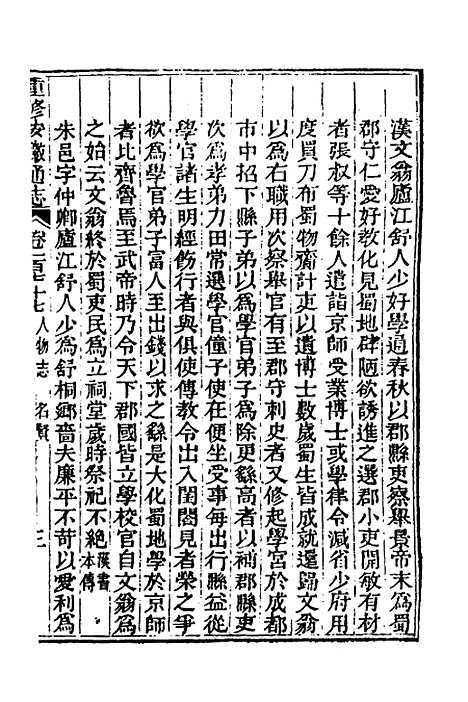 漢文翁廬江舒人少好學通春秋以郡縣吏察舉景帝末為蜀
郡守仁愛好教化見蜀地僻陋欲誘進之選郡小吏開敏有材
者張叔等十餘人遣詣京師受業博士或學律令減省少府用
度買刀布蜀物齎計吏以遺博士數歲蜀生皆成就還歸文翁
以為右職用次察舉官有至郡守刺史者又修起學宮於成都
市中招下縣子弟以為學官弟子為除更繇高者以補郡縣吏
次為孝弟力田常選學官僮子使在便坐受事每出行縣益從
學官諸生明經飭行者與俱使傳教令出入閨閤見者榮之爭
欲為學官弟子富人至出錢以求之繇是大化蜀地學於京師
者比齊魯焉至武帝時乃令天下郡國皆立學校官自文翁為
之始云文翁終於蜀吏民為立祠堂歲時祭祀不絕漢書本傳
朱邑字仲卿廬江舒人少為舒桐鄉嗇夫廉平不苛以愛利為
重修安徽通志 卷二百十七 人物志 名賢 三